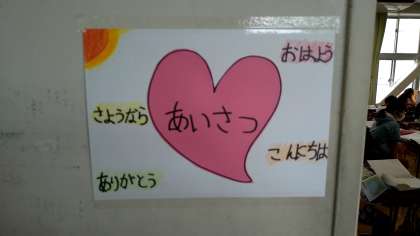 おはよう
さようなら
あいさつ
こんにちは
ありがとう